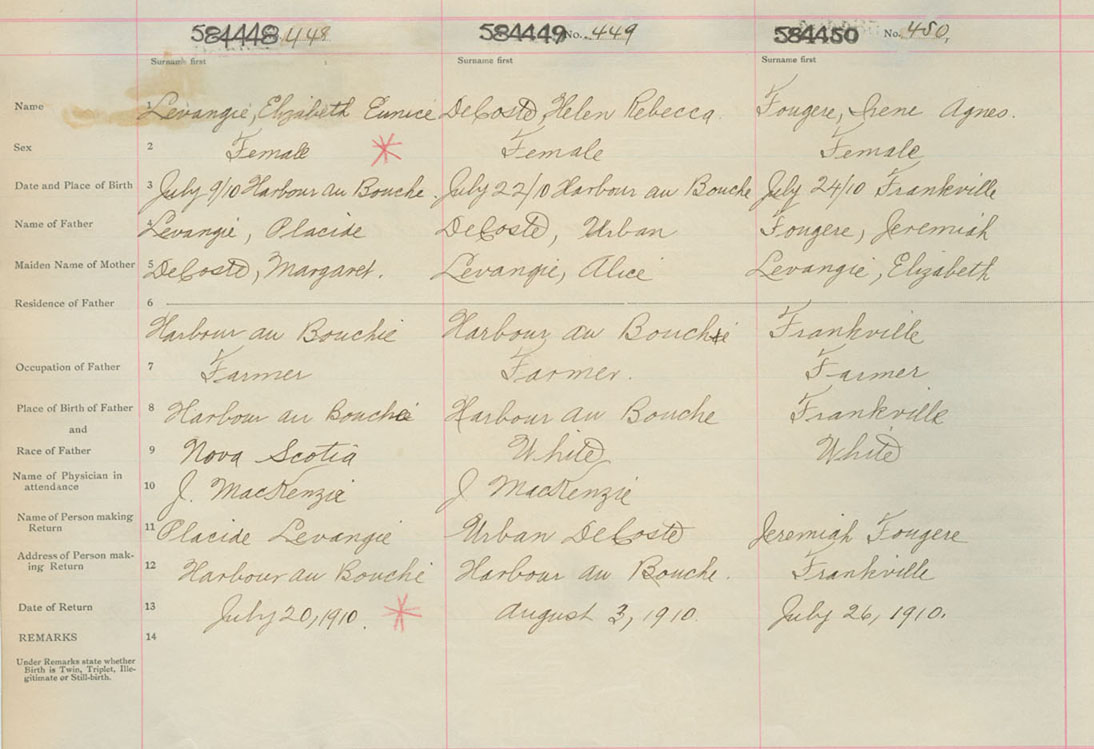 584448 448 584449 No. 449 584450 No. 450,
Surname first Surname first Surname first
Name 1 Levangie, Elizabeth Eunice DeCoste, Helen Rebecca Fougere, Irene Agnes.
Sex 2 Female Female Female
Date and Place of Birth 3 July 9/10 Harbour au Bouche. July 22/10 Harbour au Bouche July 24/10 Frankville
Name of Father 4 Levangie, Placide DeCoste, Urban Fougere, Jeremiah
Maiden Name of Mother 5 DeCoste, Margaret. Levangie, Alice Levangie, Elizabeth
Residence of Father 6
Harbour au Bouche Harbour au Bouche Frankville
Occupation of Father 7 Farmer Farmer. Farmer
Place of Birth of Father 8 Harbour au Bouche Harbour au Bouche Frankville
and
Race of Father 9 Nova Scotia White White
Name of Physician in
attendance 10 J. MacKenzie J MacKenzie
Name of Person making
Return 11 Placide Levangie Urban DeCoste Jeremiah Fougere
Address of Person mak-
ing Return 12 Harbour au Bouche Harbour au Bouche. Frankville
Date of Return 13 July 20, 1910. August 3, 1910. July 26, 1910.
REMARKS 14
Under Remarks state whether
Birth is Twin, Triplet, Ille-
gitimate or Still-birth.